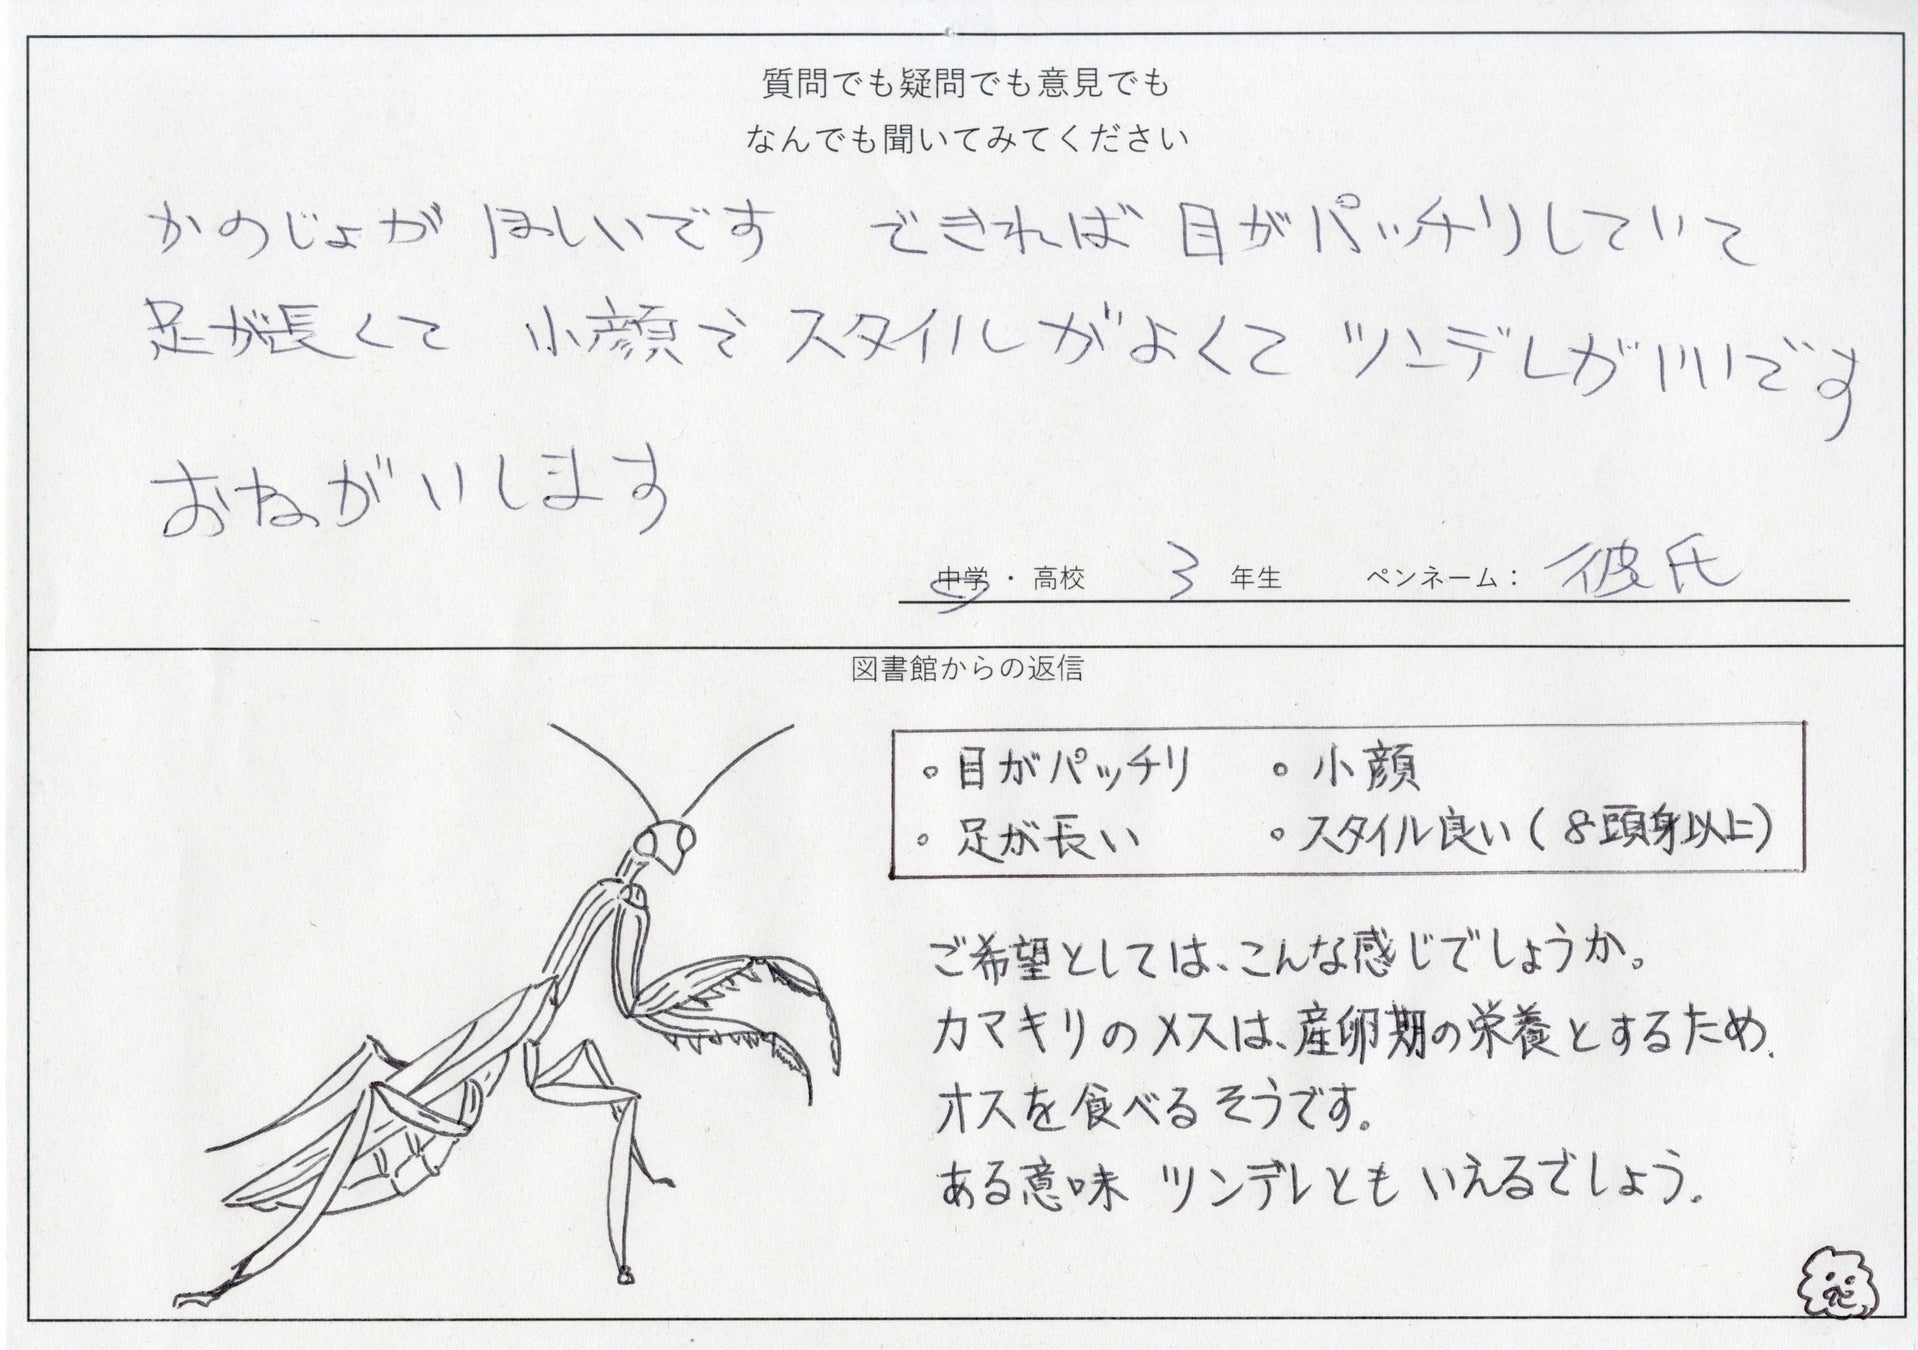 質問でも疑問でも意見でも
なんでも聞いてみてください
かのじょが ほしいです できれば 目がパッチリしていて
足が長くて 小顔で スタイルがよくて ツンデレがいいです
おねがいします
中学・高校 3 年生 ペンネーム: 彼氏
図書館からの返信
・目がパッチリ ・小顔
・足が長い ・スタイル良い(8頭身以上)
ご希望としては、こんな感じでしょうか。
カマキリのメスは、産卵期の栄養とするため、
オスを食べるそうです。
ある意味 ツンデレとも いえるでしょう。